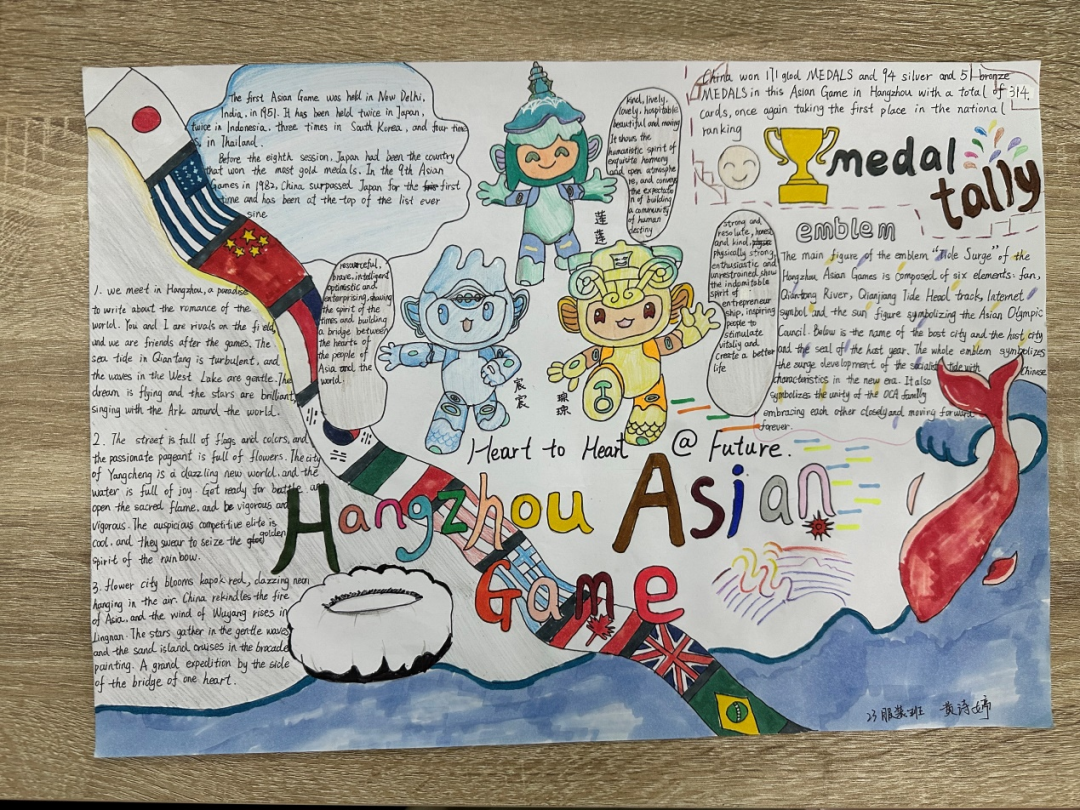 The first Asian Game was held in New Delhi,
India, in 1951. It has been held twice in Japan,
twice in Indonesia, three times in South Korea, and four times
in Thailand.
Before the eighth session, Japan had been the country
that won the most gold medals. In the 9th Asian
Games in 1982, China surpassed Japan for the first
time and has been at the top of the list ever
sine
kind, lively,
lovely, hospitable
beautiful and moving
It shows the
humanistic spirit of
exquisite harmony
and open atmosphe
re, and conveys
the expectatio
n of building
a community
of human
destiny
莲莲
China won 171 glod MEDALS and 94 silver and 51 bronze
MEDALS in this Asian Game in Hangzhou with a total of 314.
cards, once again taking the first place in the national
ranking
medal
tally
emblem
The main figure of the emblem, "Tide Surge" of the
Hangzhou Asian Games is composed of six elements: fan,
Qiantong River, Qianjiang Tide Head, track, Internet
symbol and the sun figure symbolizing the Asian Olympic
Council. Below is the name of the host city and the host city
and the seal of the host year. The whole emblem symbolizes
the surge development of the socialist tide with
Chinese
characteristics in the new era. It also
symbolizes the unity of the OCA family
embracing each other closely and moving forward
forever.
resourceful,
brave, intelligent
optimistic and
enterprising, showing
the spirit of the
times and building
a bridge between
the hearts of
the people of
Asia and the
world.
宸宸
strong and
resolute, honest
and kind,
physically strong,
enthusiastic and
unrestrained, show
the indomitable
spirit of
entrepreneur
ship, inspiring
people to
stimulate
vitality and
create a better
life
琮琮
1. we meet in Hangzhou, a paradise
to write about the romance of the
world. You and I are rivals on the field,
and we are friends after the games. The
sea tide in Qiantang is turbulent, and
the waves in the West Lake are gentle. The
dream is flying and the stars are brilliant,
singing with the Ark around the world.
2. The street is full of flags and colors, and
the passionate pageant is full of flowers. The city
of Yangcheng is a dazzling new world, and the
water is full of joy. Got ready for battle and
open the sacred flame, and be vigorous and
vigorous. The auspicious competitive elite is
cool, and they swear to seize the golden
spirit of the rainbow.
3. flower city blooms kapok red, dazzling neon
hanging in the air. China rekindles the fire
of Asia, and the wind of Wuyang rises in
Lingnan. The stars gather in the gentle waves
and the sand island cruises in the brocade
painting. A grand expedition by the side
of the bridge of one heart.
Heart to Heart @ Future.
Hangzhou Asian
Game
23服装班 黄诗婷